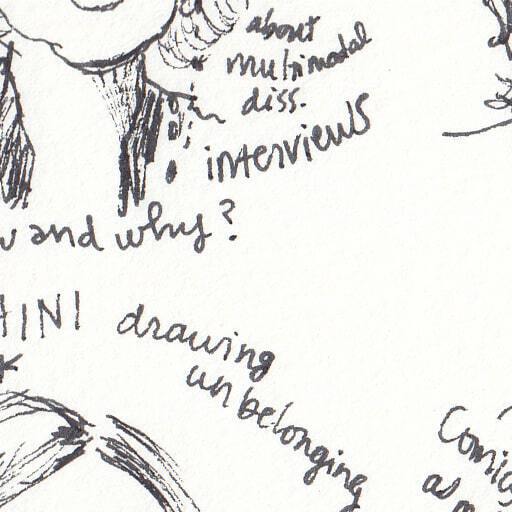 about
multimodal
diss.
interviews
and why?
drawing
unbelonging
Comics
as